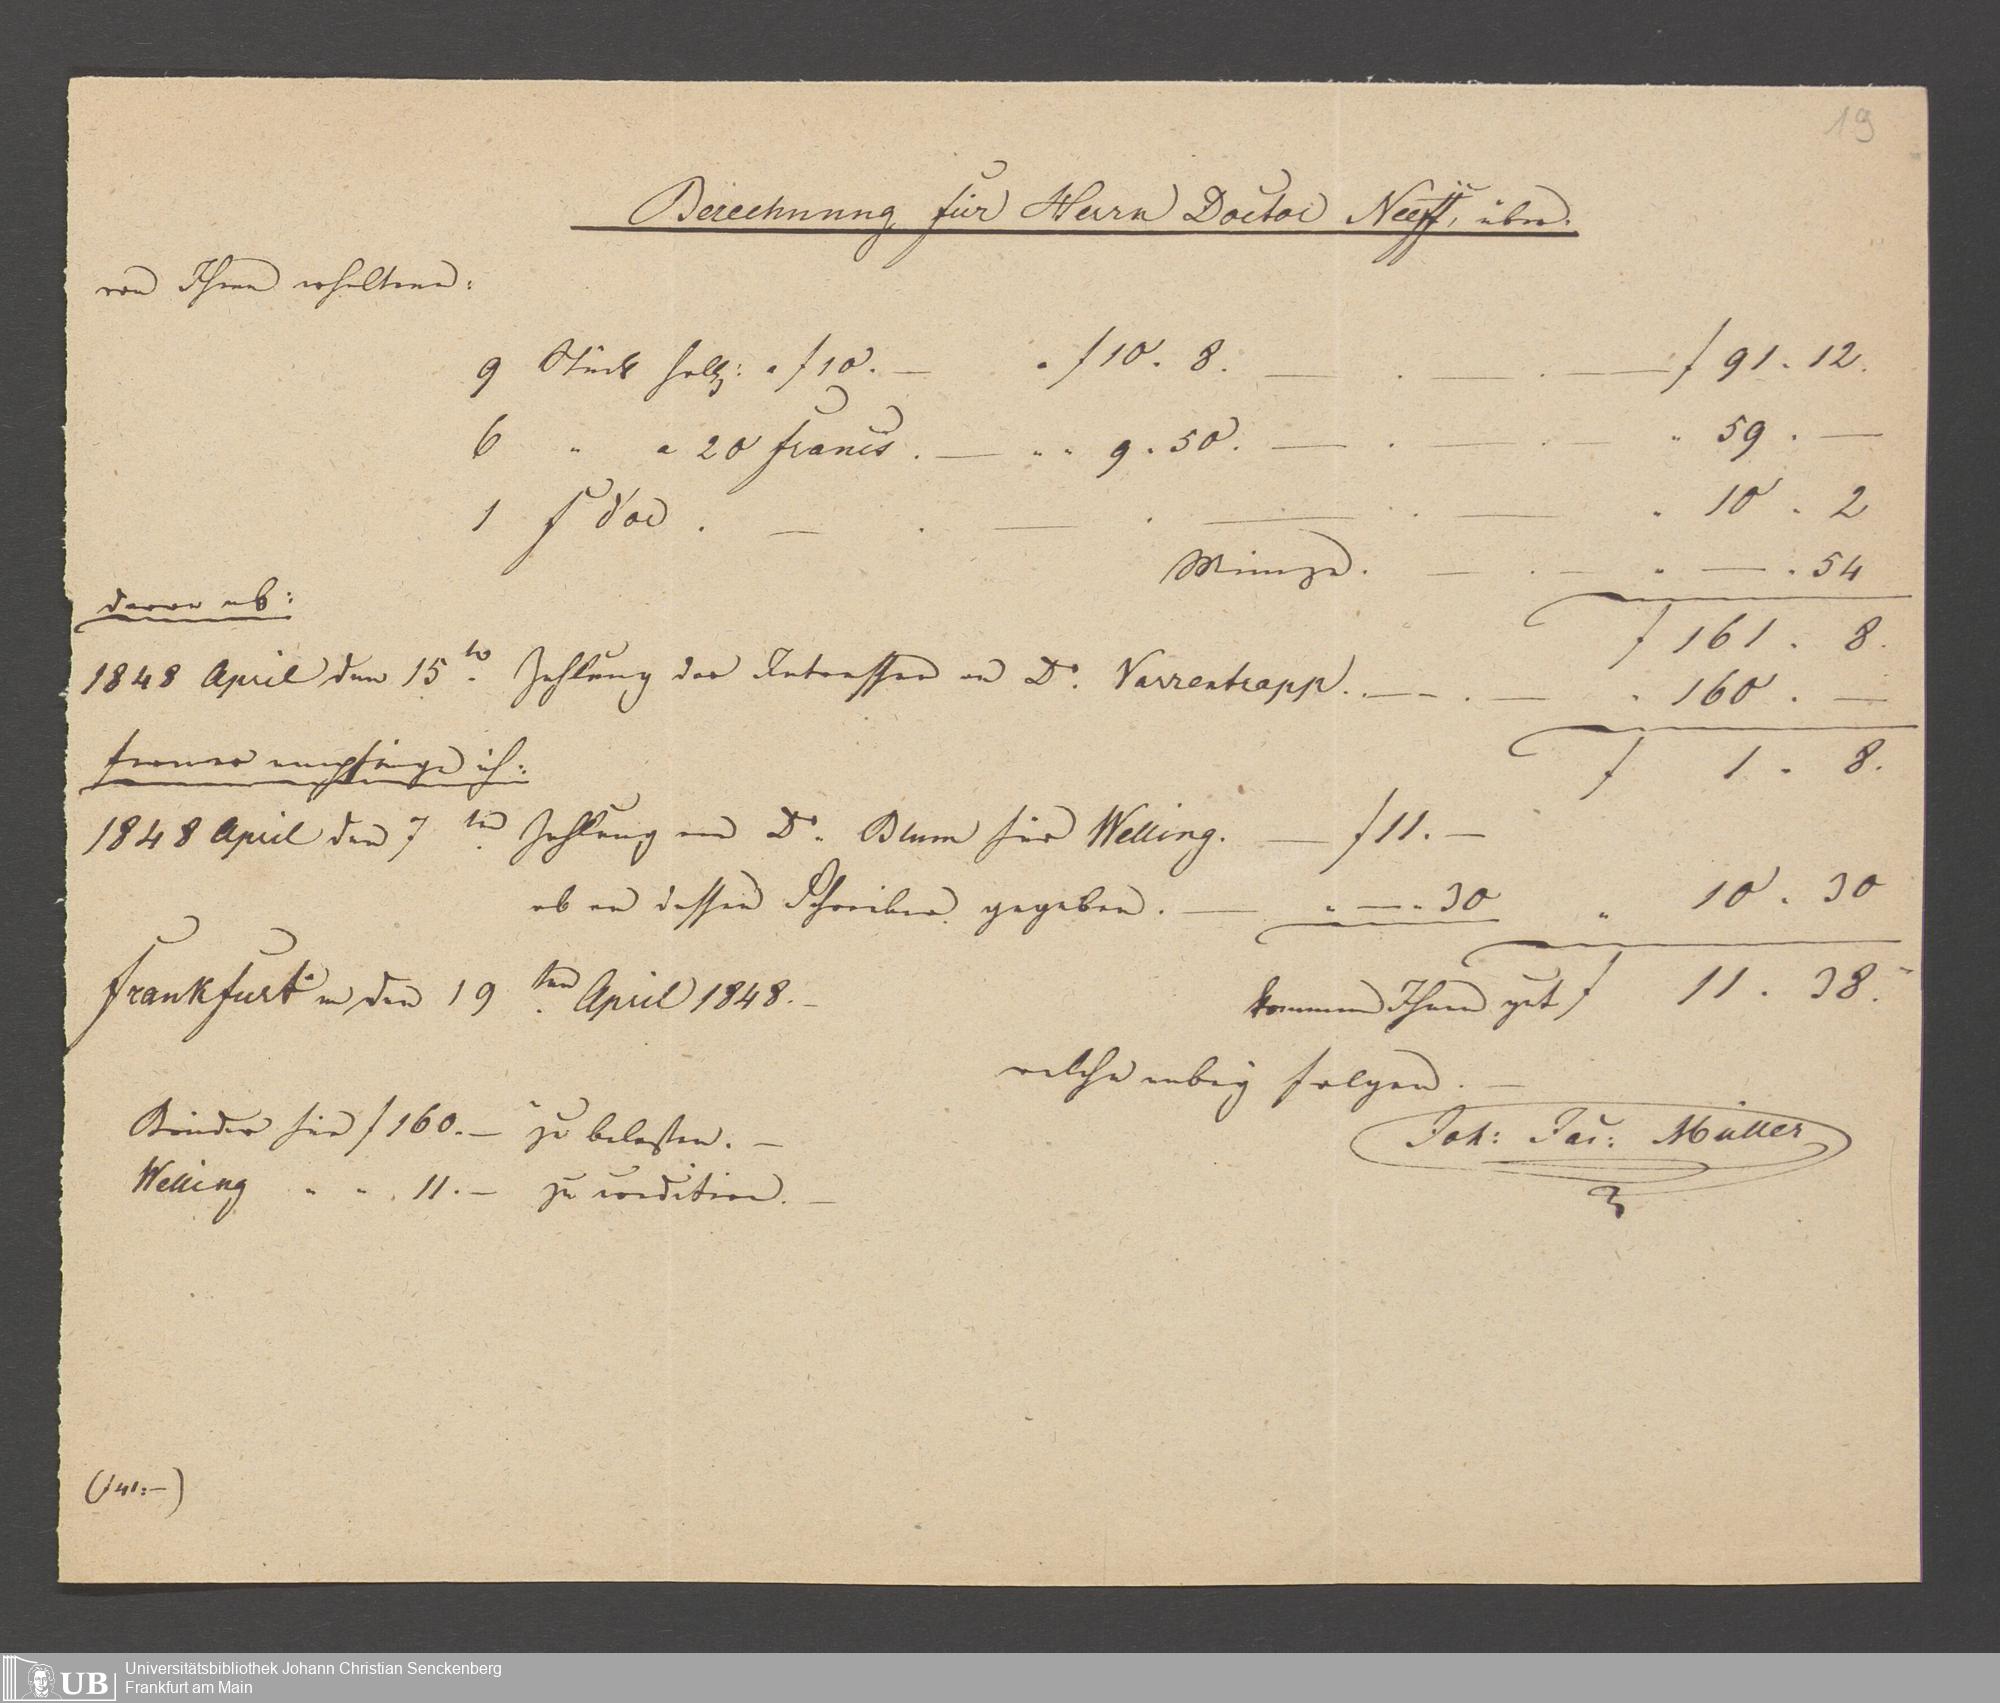 19
Berechnung für Herrn Doctor Neeff, über.
von Ihnen erhaltene:
9 Stück holl: a f 10. — a f 10. 8. — . — . — f 91. 12.
6 " a 20 francs. — " " 9. 50. — . — . — " 59. —
1 f d'or . — . — . — . . — " 10. 2
Münze. — . — " — . 54
davon ab:
f 161. 8.
1848 April den 15te. Zahlung der Interessen an Dr. Varrentrapp. — . — " 160. —
f 1. 8.
ferner empfinge ich:
1848 April den 7ten Zahlung von Dr. Blum für Welling. — f 11. —
ab an dessen Schreiber gegeben. — " — " 30 " 10. 30
kommen Ihnen gut f 11. 38.
Frankfurt a/m den 19ten April 1848. —
welche anbey folgen. —
Joh: Jac: Müller
Binder für f 160. — zu belasten. —
Welling " " 11. — zu creditiren. —
(f 41: —)
UB
Universitätsbibliothek Johann Christian Senckenberg
Frankfurt am Main